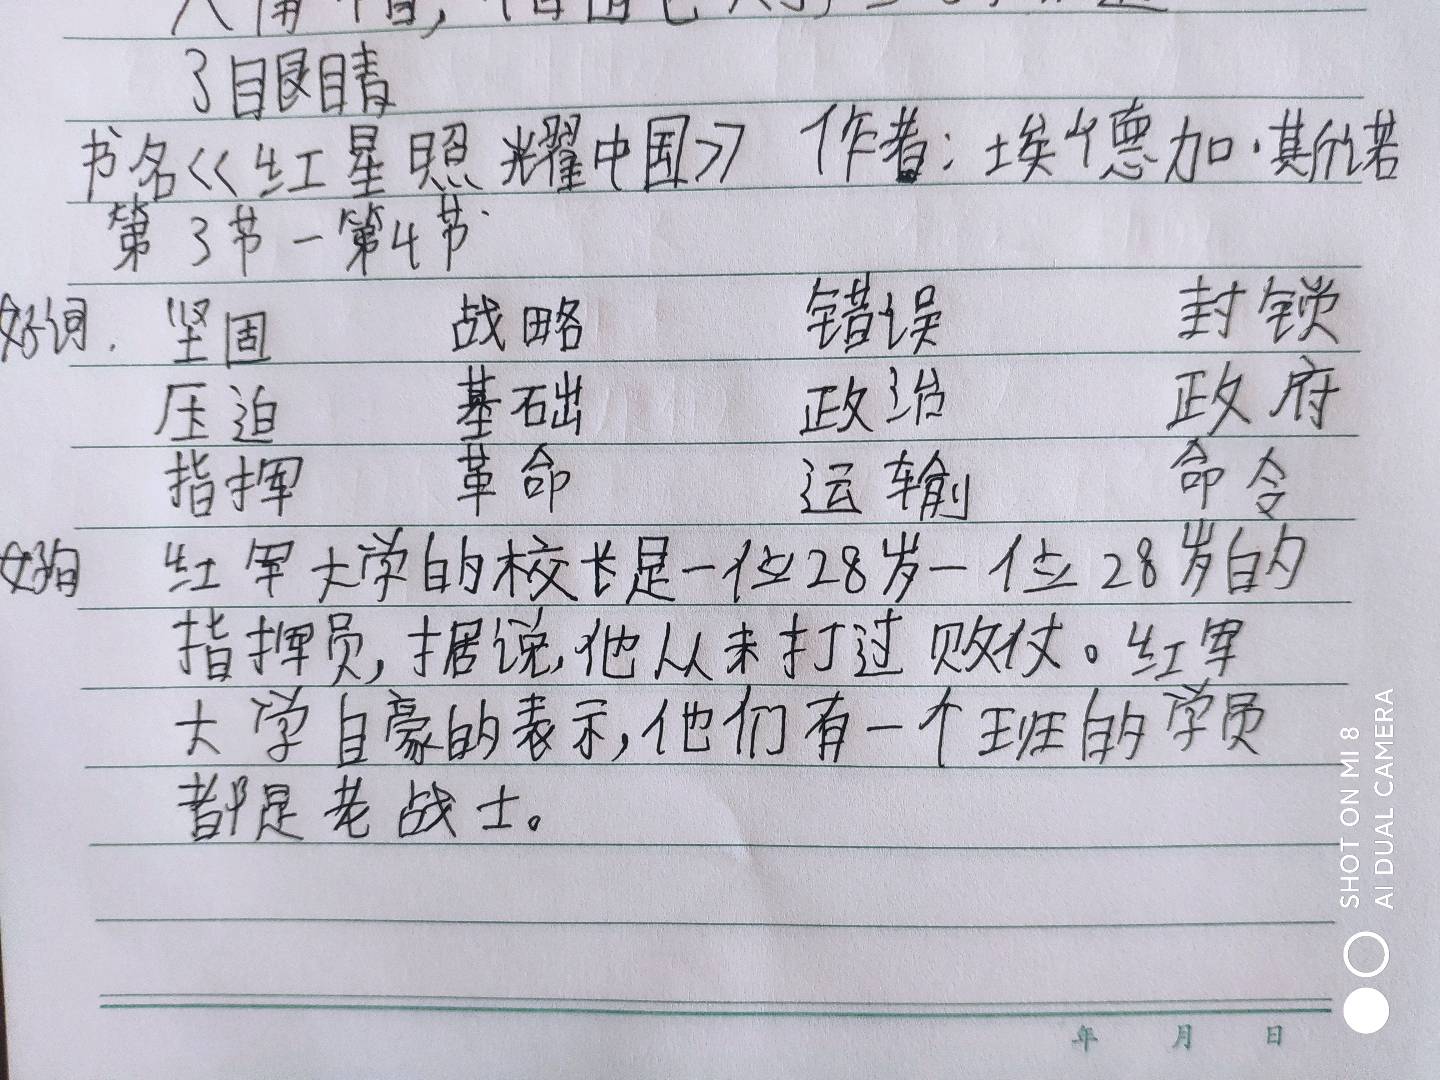 了眼睛
书名《红星照耀中国》 作者:埃德加·斯诺
第3节一第4节
好词. 坚固 战略 错误 封锁
压迫 基础 政治 政府
指挥 革命 运输 命令
好句 红军大学的校长是一位28岁一位28岁的
指挥员,据说,他从未打过败仗。红军
大学自豪的表示,他们有一个班的学员
都是老战士。
年 月 日
SHOT ON MI 8
AI DUAL CAMERA